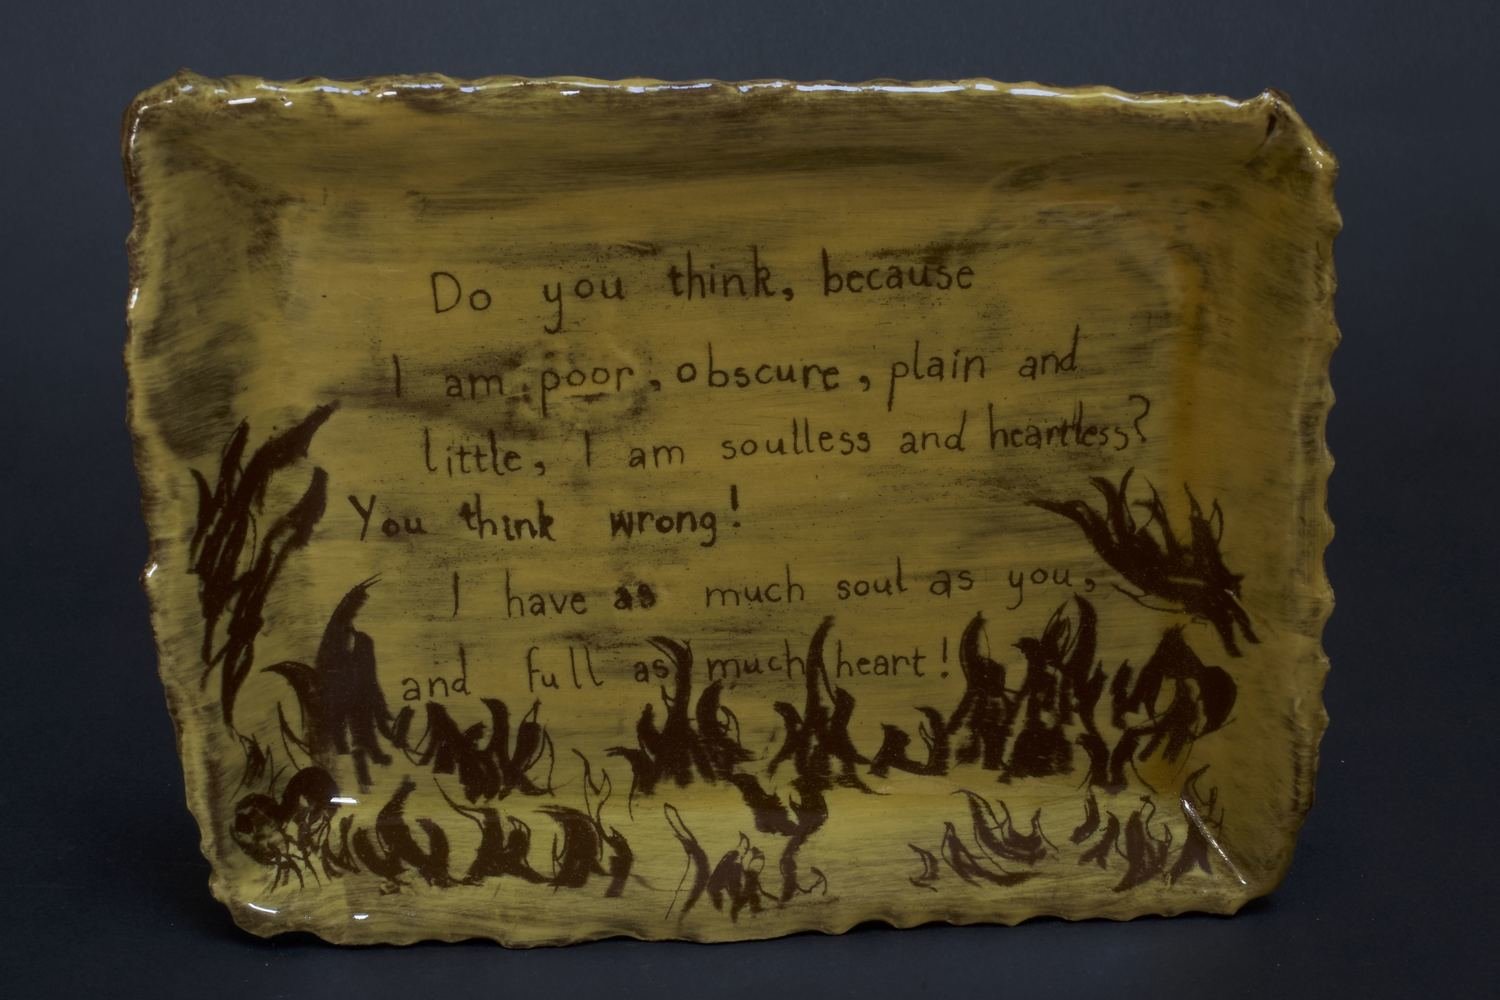 Do you think, because
I am poor, obscure, plain and
little, I am soulless and heartless?
You think wrong!
I have as much soul as you,
and full as much heart!